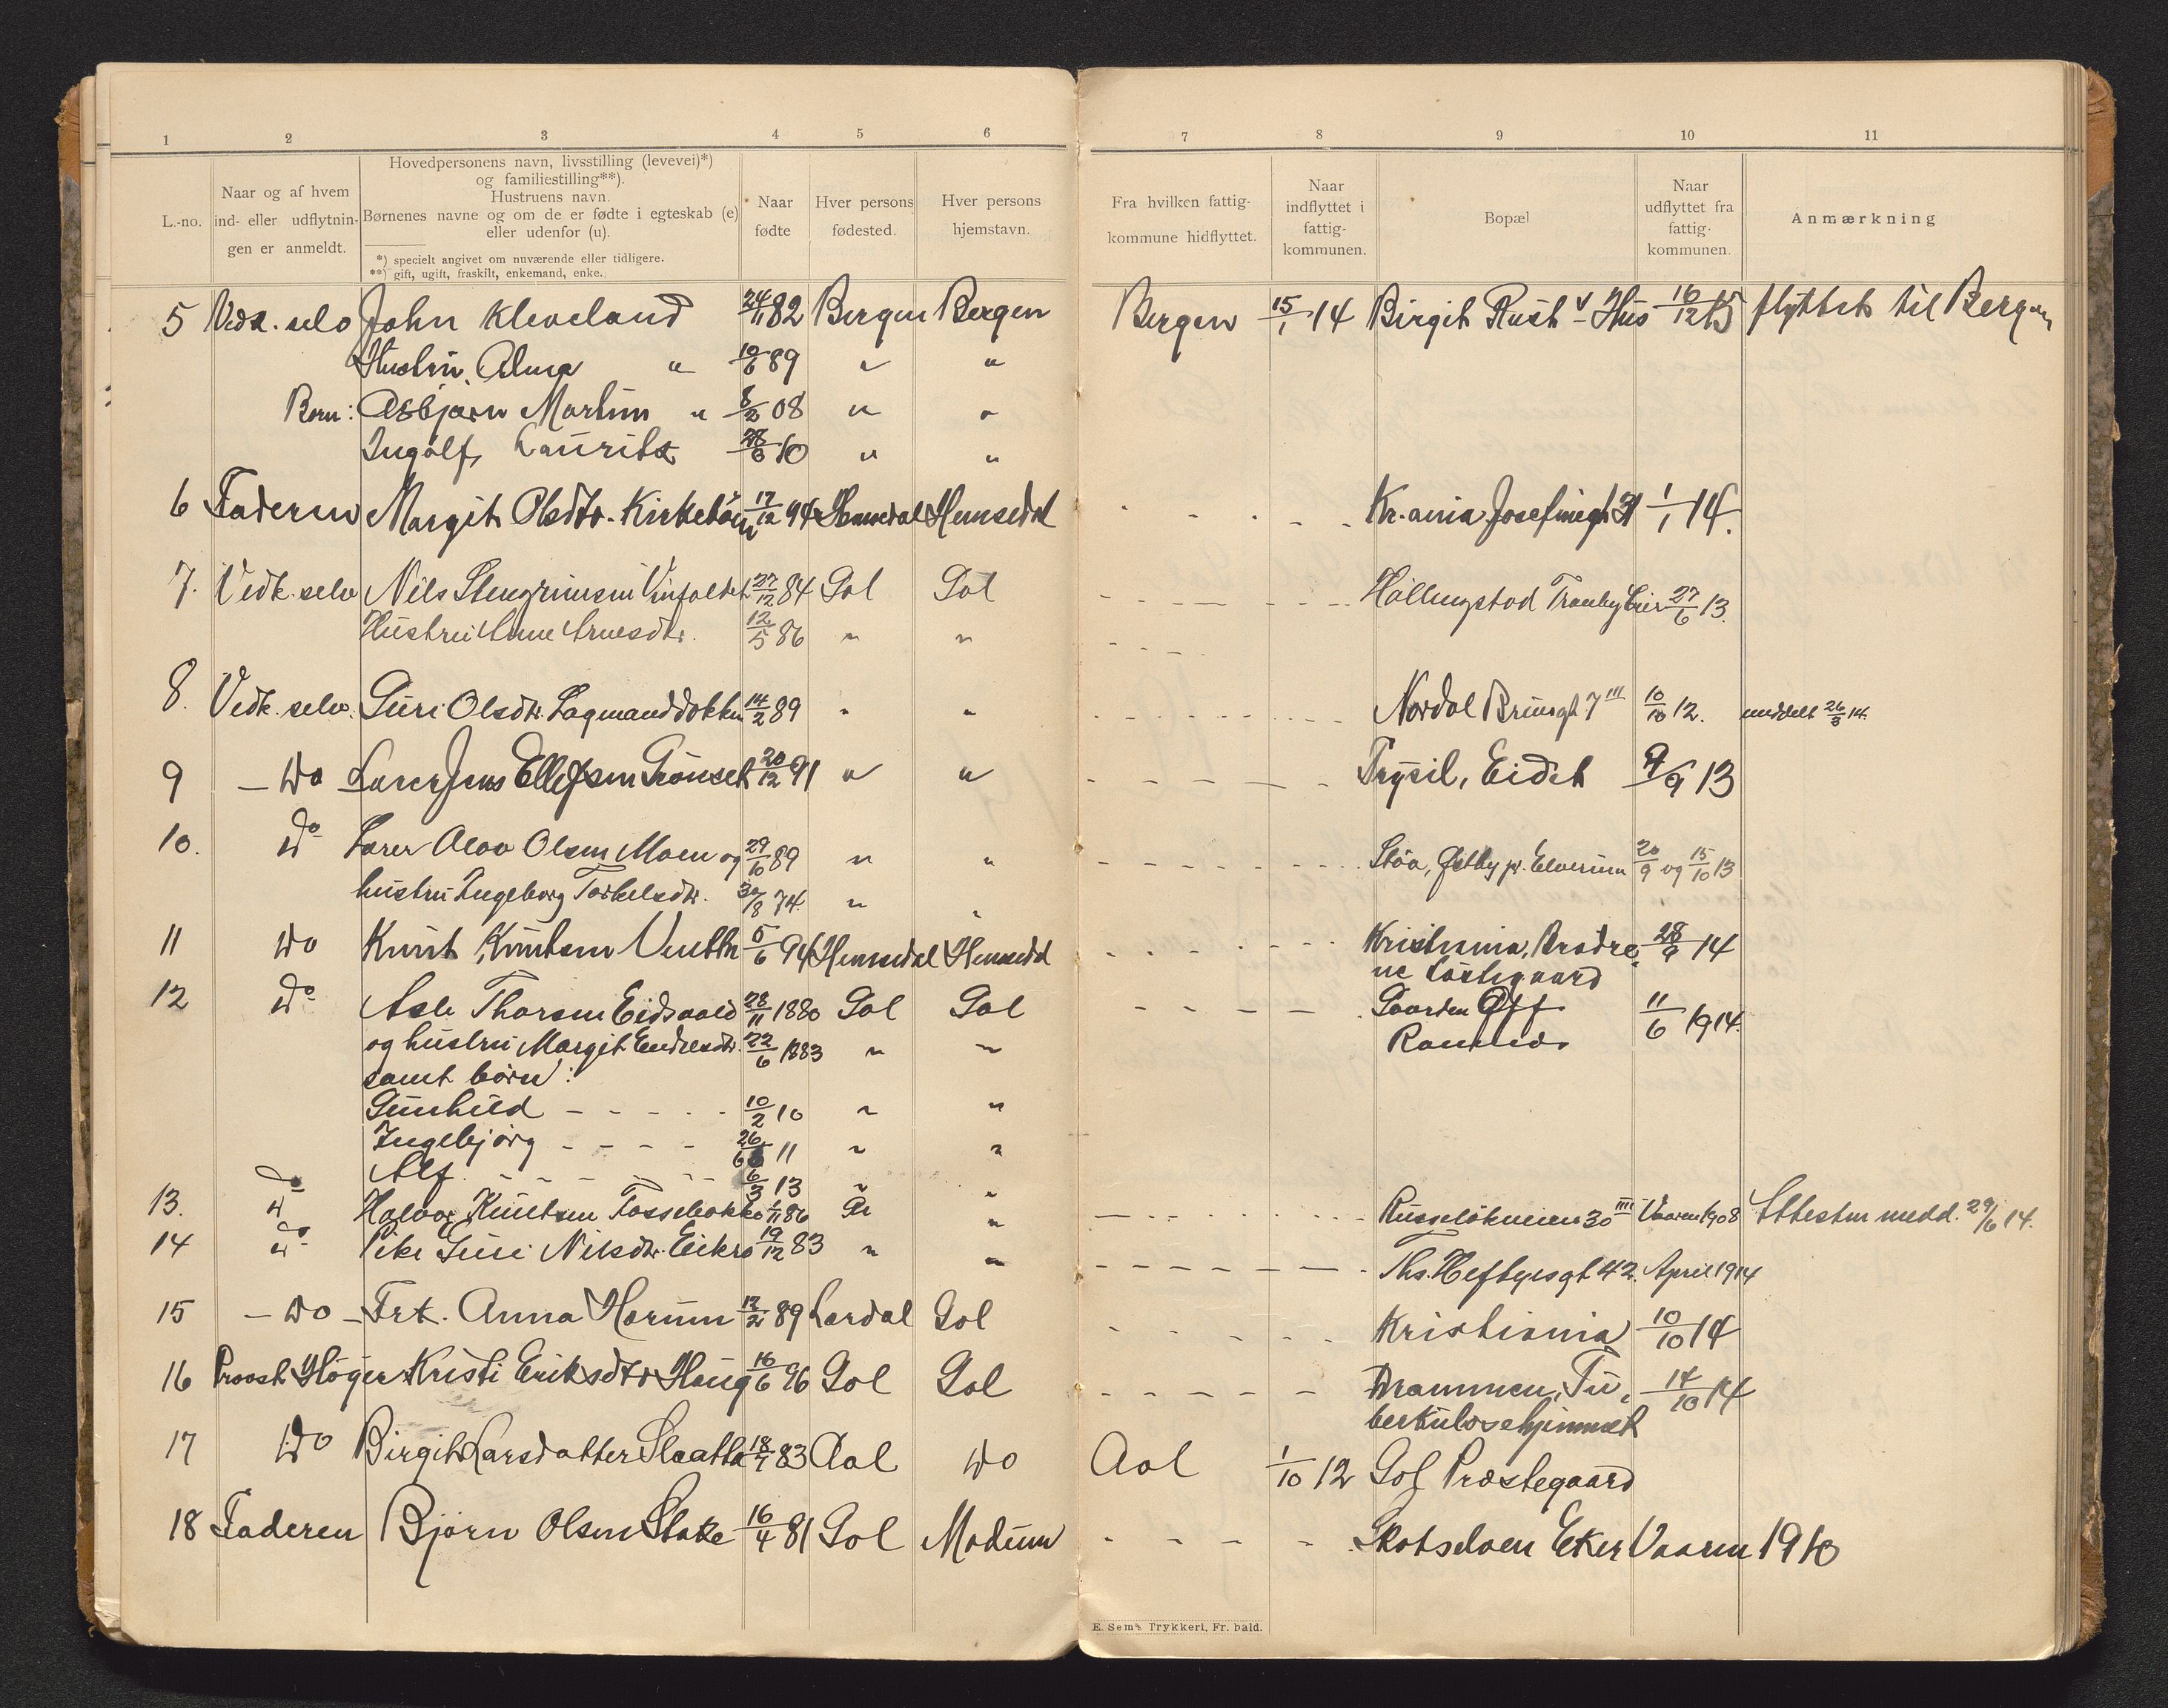 1 2 3 4 5 6 7 8 9 10 11
L.-no.
Naar og af hvem
ind- eller udflytnin-
gen er anmeldt.
Hovedpersonens navn, livsstilling (levevei)*)
og familiestilling**).
Hustruens navn.
Børnenes navne og om de er fødte i egteskab (e)
eller udenfor (u).
*) specielt angivet om nuværende eller tidligere.
**) gift, ugift, fraskilt, enkemand, enke.
Naar
fødte
Hver persons
fødested.
Hver persons
hjemstavn.
Fra hvilken fattig-
kommune hidflyttet.
Naar
indflyttet i
fattig-
kommunen.
Bopæl
Naar
udflyttet fra
fattig-
kommunen.
Anmærkning
5 Vedk. selv John Kleveland 24/11 82 Bergen Bergen Bergen 15/1 14 Birgit Rust's Hus 16/12 15 flyttet til Bergen
Hustru Alma " 10/6 89 " "
Børn: Asbjørn Martin " 8/2 08 " "
Ingolf, Lauritz 28/6 10 " "
6 Faderen Margit Olsdtr. Kirkebøen 17/12 94 Hemsedal Hemsedal - - - - - Kr.ania Josefinegt 31 1/1 14.
7. Vedk. selv Nils Stengrimsen 27/12 84 Gol Gol - - - - - - Hallingstad Tranby Lier 27/6 13.
Hustru Anne Arnesdtr. 12/5 86 " " - - - -
8. Vedk. selv. Guri Olsdtr. Lagmanddokken 14/2 89 " " - - - - - Nordal Brunsgt. 7 III 10/10 12. meddelt 26/3 14.
9 - Do Lærer Jens Ellefsen Grønset 20/12 91 " " - - - - - Trysil, Eidet 9/9 13
10. Do Lærer Olav Olsen Moen og 29/10 89 " " - - - - - Støa, Østby pr. Elverum 20/9 og 15/10 13
hustru Ingeborg Torkelsdtr. 30/8 74. " "
11 Do Knut Knutsen 5/6 94 Hemsedal Hemsedal - - - - - Kristiania, Brødre- 28/9 14
ne
12 Do Asle Thorsen 28/11 1880 Gol Gol - - - - Gaarden 11/6 1914.
og hustru Margit Endresdtr. 22/6 1883 " "
samt børn:
Gunhild - - - - - 10/2 10 " "
Ingebjørg - - - - 26/6 11 " "
Alf. - - - - - 6/3 13 " "
13. Do Halvor Knutsen 1/11 86 " - - - - - Russeløkveien 30 III Vaaren 1908 Attesten medd. 29/6 14.
14 Do Pike Guri Nilsdtr. Eikro 19/12 83 " " - - - - - Ths. Heftyesgt 42. April 1914
15 - Do - Frk. Anna Horum 12/2 89 Lærdal Gol - - - - - Kristiania 10/10 14
16 Provst Høyer Kristi Eriksdtr Haug 16/6 96 Gol Gol - - - - - Drammen, Tu- 14/10 14
berkulosehjemmet
17 Do Birgit Larsdatter Slaatta 18/7 83 Aal Do Aal 1/10 12 Gol Præstegaard
18 Faderen Bjørn Olsen Stake 16/4 81 Gol Modum - - - - Skotselven Eker Vaaren 1910
E. Sem's Trykkeri, Fr. hald.